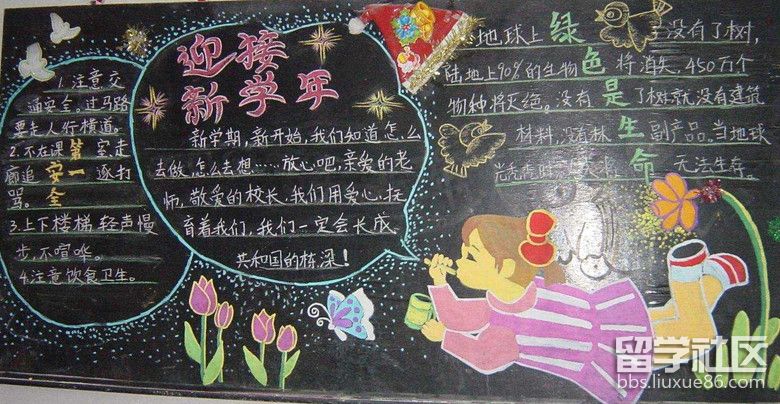 1.注意交
通安全。过马路
要走人行横道。
2.不在课室走
廊追逐打
骂。
安全第一
3.上下楼梯,轻声慢
步,不喧哗。
4.注意饮食卫生。
迎接
新学年
新学期,新开始,我们知道怎么
去做,怎么去想……放心吧,亲爱的老
师,敬爱的校长,我们用爱心,抚
育着我们,我们一定会长成
共和国的栋梁!
绿色是生命
地球上没有了树,
陆地上90%的生物将消失,450万个
物种将灭绝。没有了树就没有建筑
材料,没有林副产品。当地球
光秃秃时
无法生存。
留学社区
bbs.liuxue86.com